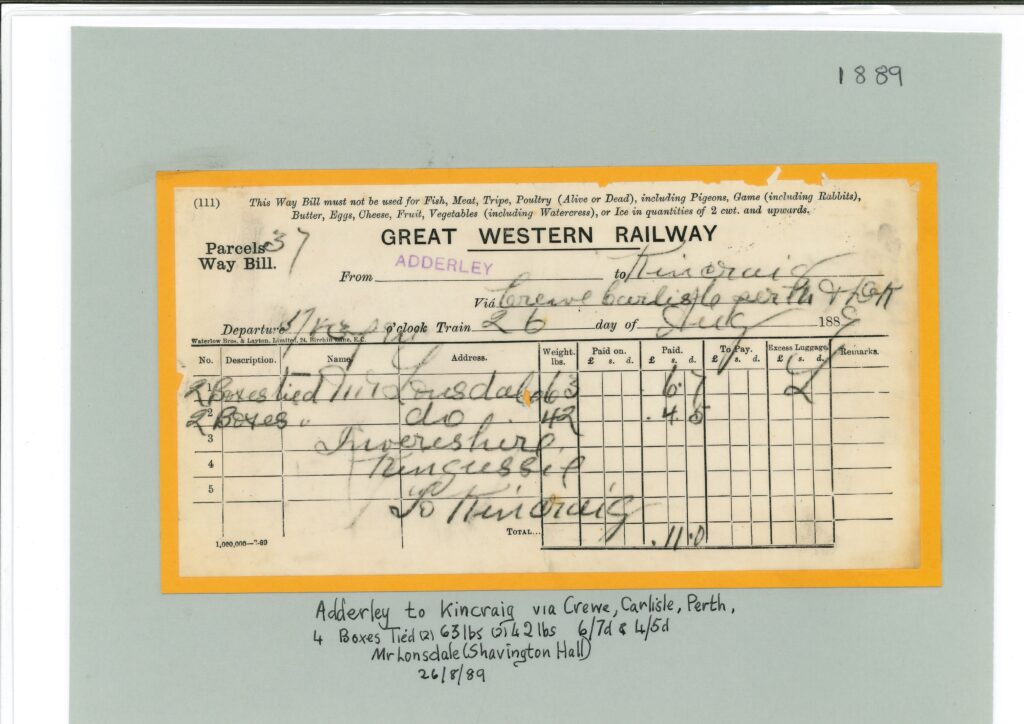 1889
(111) This Way Bill must not be used for Fish, Meat, Tripe, Poultry (Alive or Dead), including Pigeons, Game (including Rabbits),
Butter, Eggs, Cheese, Fruit, Vegetables (including Watercress), or Ice in quantities of 2 cwt. and upwards.
Parcels 37
Way Bill.
GREAT WESTERN RAILWAY
From ADDERLEY to Kincraig
Viâ Crewe Carlisle Perth
Departure o'clock Train 26 day of Aug 1889
Waterlow Bros. & Layton, Limited, 24, Birchin Lane, E.C.
No. Description. Name. Address. Weight. lbs. Paid on. £ s. d. Paid. £ s. d. To Pay. £ s. d. Excess Luggage. £ s. d. Remarks.
2 Boxes tied Mr Lonsdale 63 6.7 L
2 2 Boxes " do 42 .4.5
3 Invereshire
4 Kingussie
5 To Kincraig
TOTAL... .11.0
1,000,000—7-89
Adderley to Kincraig via Crewe, Carlisle, Perth.
4 Boxes Tied (2) 63 lbs (2) 42 lbs 6/7d & 4/5d
Mr Lonsdale (Shavington Hall)
26/8/89